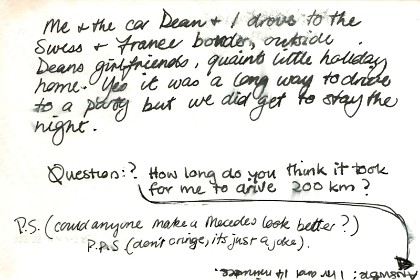 Me & the car Dean & I drove to the
Swiss & France border, outside
Deans girlfriends, quaint little holiday
home. Yes it was a long way to drive
to a party but we did get to stay the
night.
Question:? How long do you think it took
for me to drive 200 km?
P.S. (could anyone make a Mecedes look better?)
P.P.S (don't cringe, its just a joke).
Answer: 1 hr and 14 minutes.